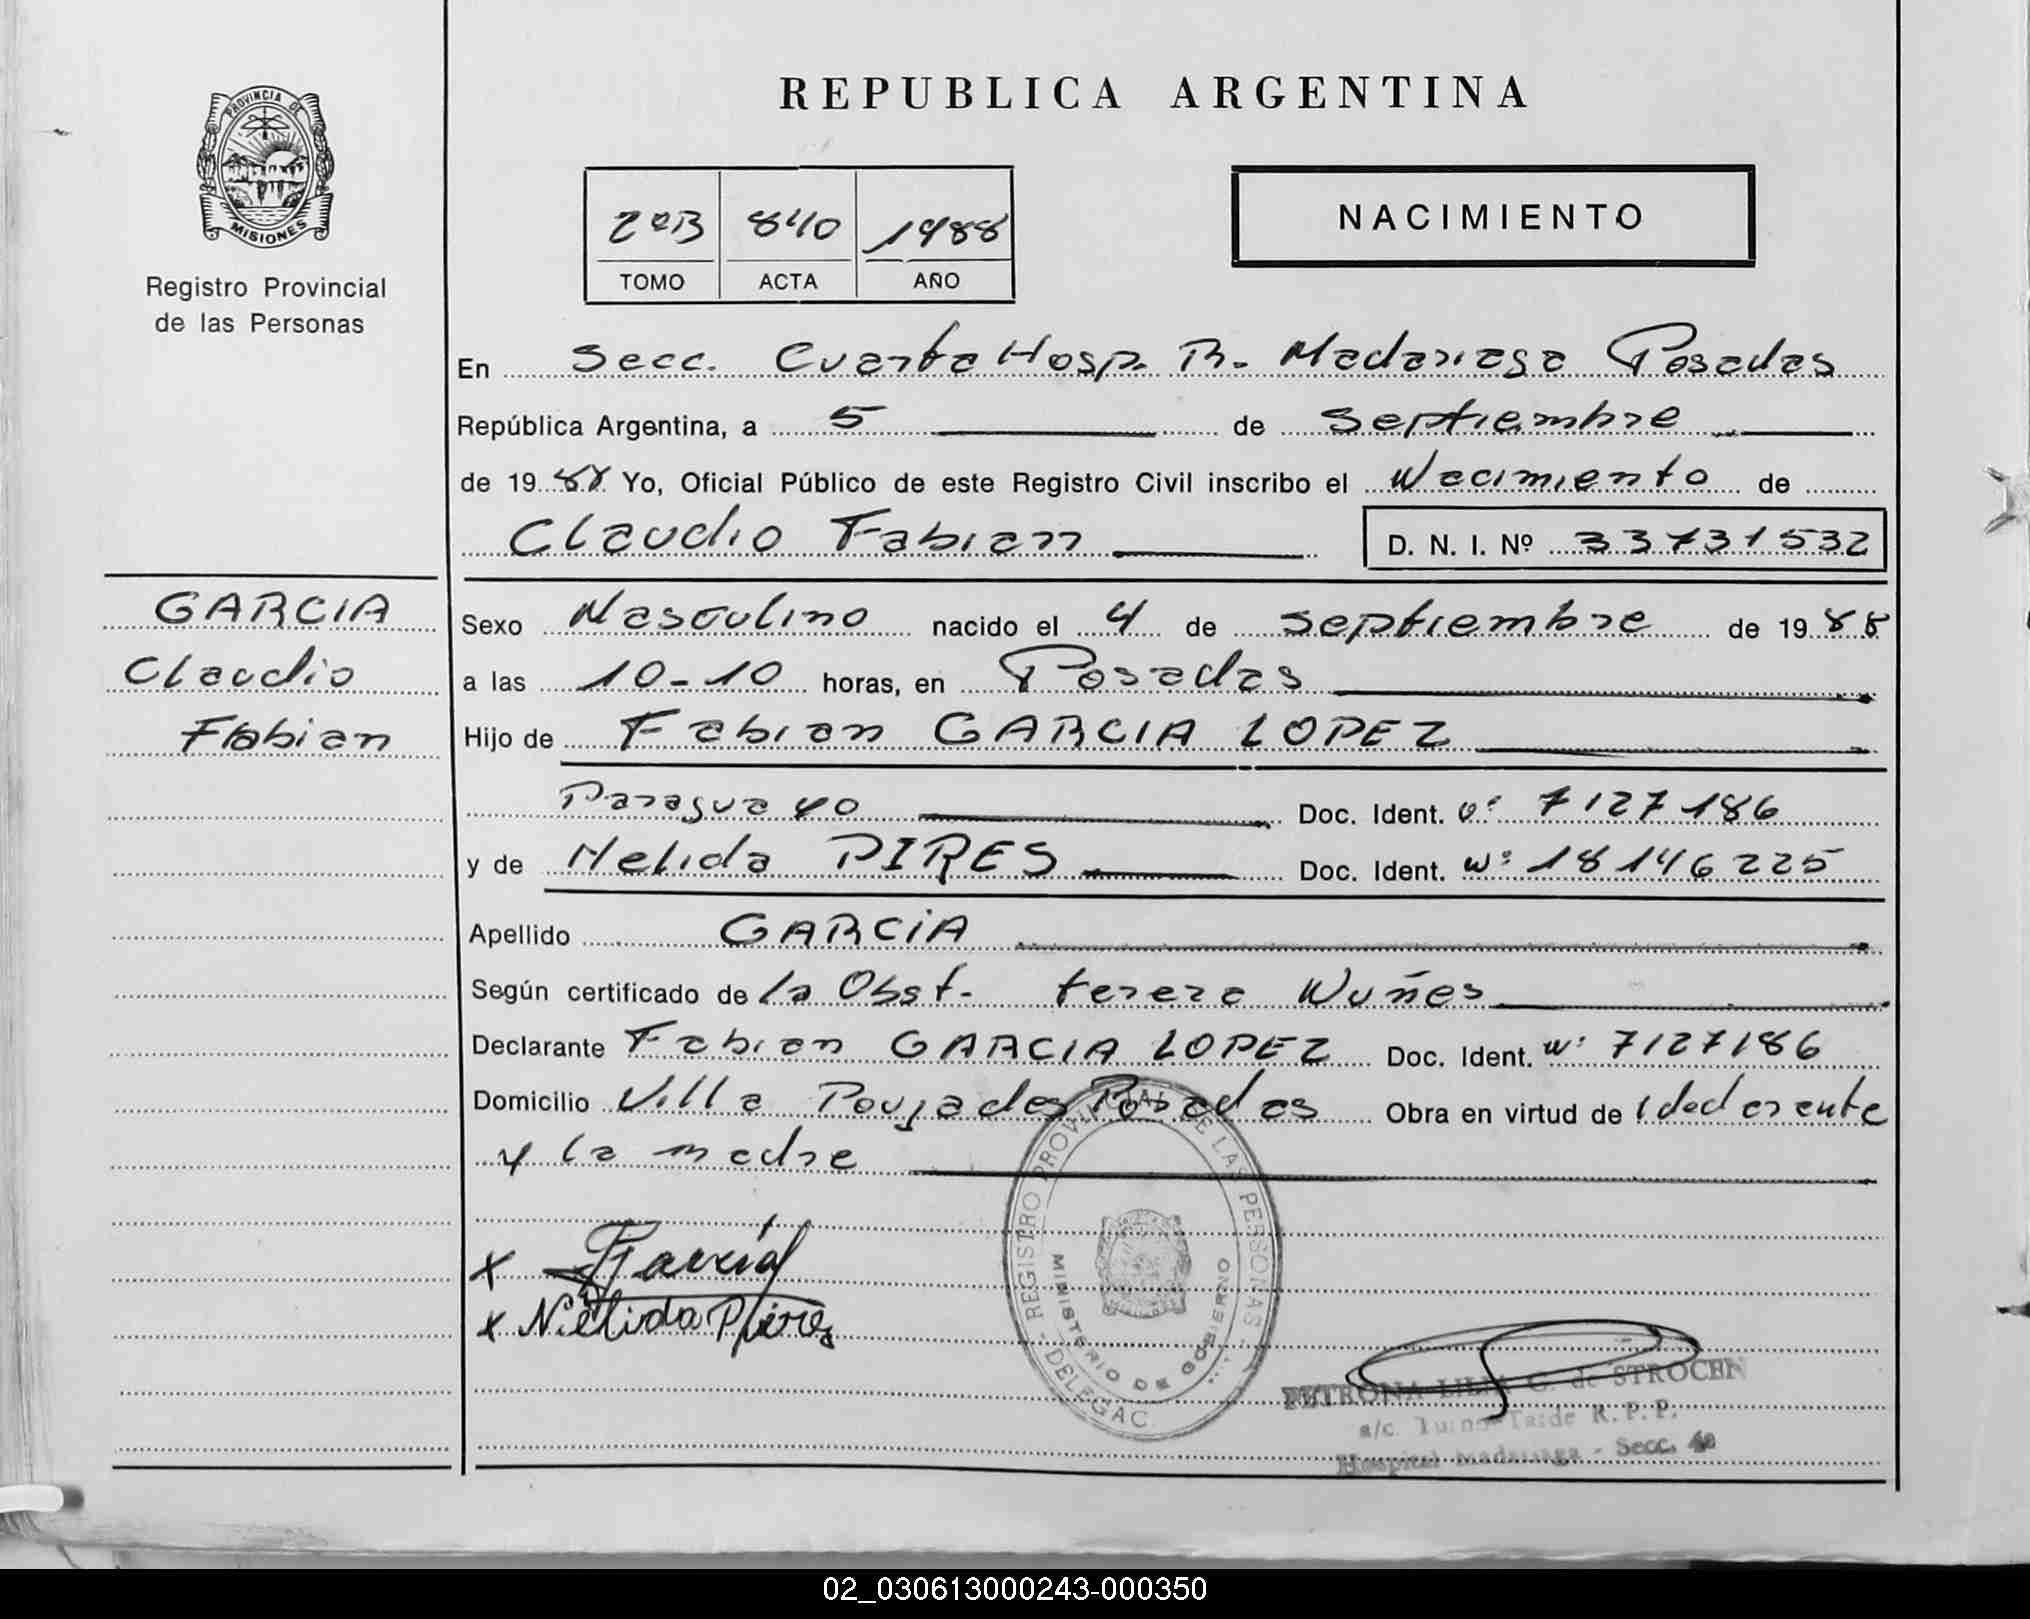 PROVINCIA DE
MISIONES
Registro Provincial
de las Personas
REPUBLICA ARGENTINA
2ºB 840 1988
TOMO ACTA AÑO
NACIMIENTO
En Secc. Cuarta Hosp. R. Madariaga Posadas
República Argentina, a 5 de septiembre
de 1988 Yo, Oficial Público de este Registro Civil inscribo el Nacimiento de
Claudio Fabian D. N. I. Nº 33731532
GARCIA
Claudio
Fabian
Sexo Masculino nacido el 4 de septiembre de 1988
a las 10-10 horas, en Posadas
Hijo de Fabian GARCIA LOPEZ
Paraguayo Doc. Ident. nº 7127186
y de Nelida PIRES Doc. Ident. Nº 18146225
Apellido GARCiA
Según certificado de la Obst. teresa Nuñes
Declarante Fabian GARCIA LOPEZ Doc. Ident. Nº 7127186
Domicilio Villa Poujades Posadas Obra en virtud de declarante
y la madre
x García
x Nélida
REGISTRO PROVINCIAL DE LAS PERSONAS
MINISTERIO DE GOBIERNO
DELEGAC.
PETRONA LILIA G. de STROCEN
a/c. Turno Tarde R. P. P.
Hospital Madariaga - Secc. 4a
02_030613000243-000350